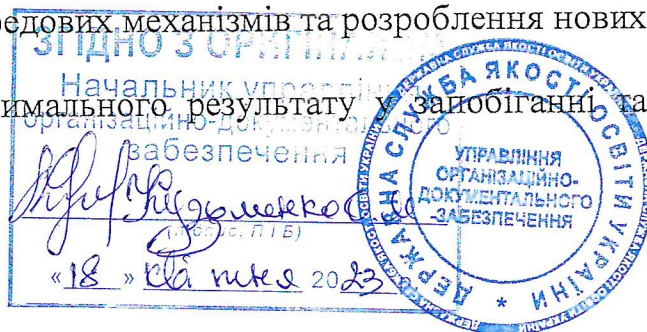 редових механізмів та розроблення нових
ЗГІДНО З ОРИГІНАЛОМ
Начальник управління
имального результату у запобіганні та
організаційно-документального
забезпечення
(підпис, П І Б)
«18 » квітня 2023
ДЕРЖАВНА СЛУЖБА ЯКОСТІ ОСВІТИ УКРАЇНИ
УПРАВЛІННЯ
ОРГАНІЗАЦІЙНО-
ДОКУМЕНТАЛЬНОГО
-ЗАБЕЗПЕЧЕННЯ